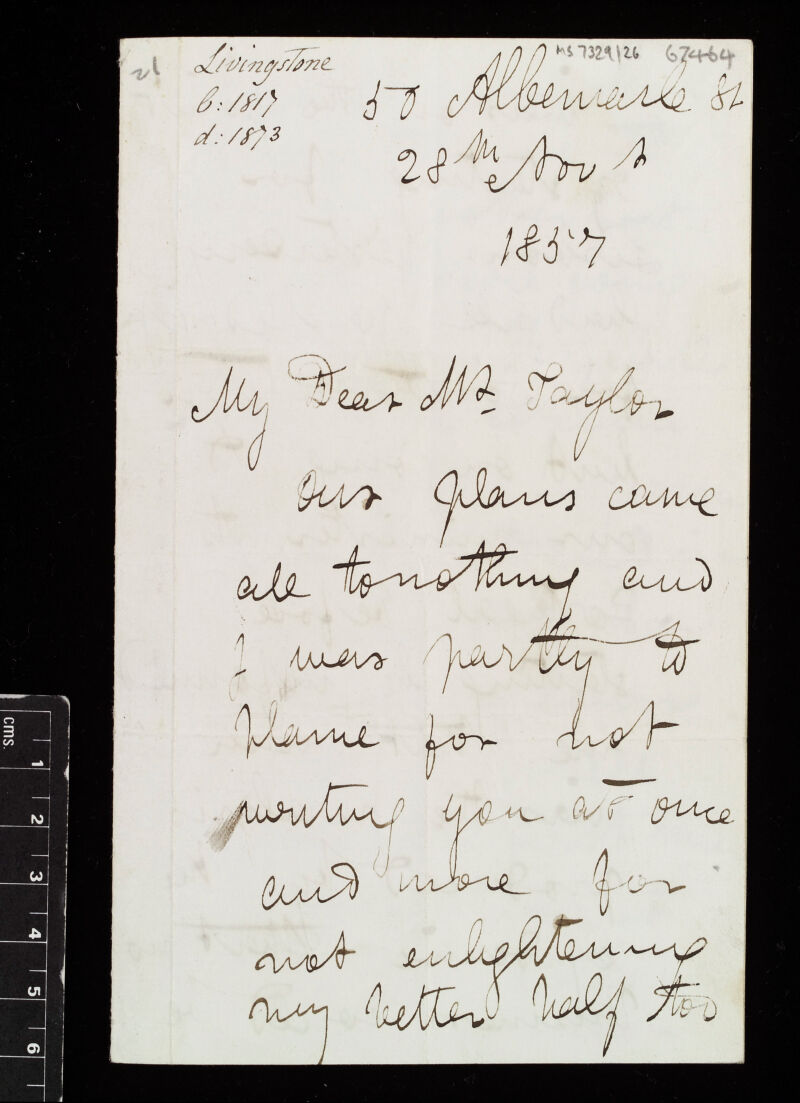 21
Livingstone
b: 1817
d: 1873
MS 7329/26 67464
50 Albemarle St
28th Nov r
1857
My Dear Mr. Taylor
Our plans came
all to nothing and
I was partly to
blame for not
writing you at once
and more for
not enlightening
my better half too
cms.
1
2
3
4
5
6